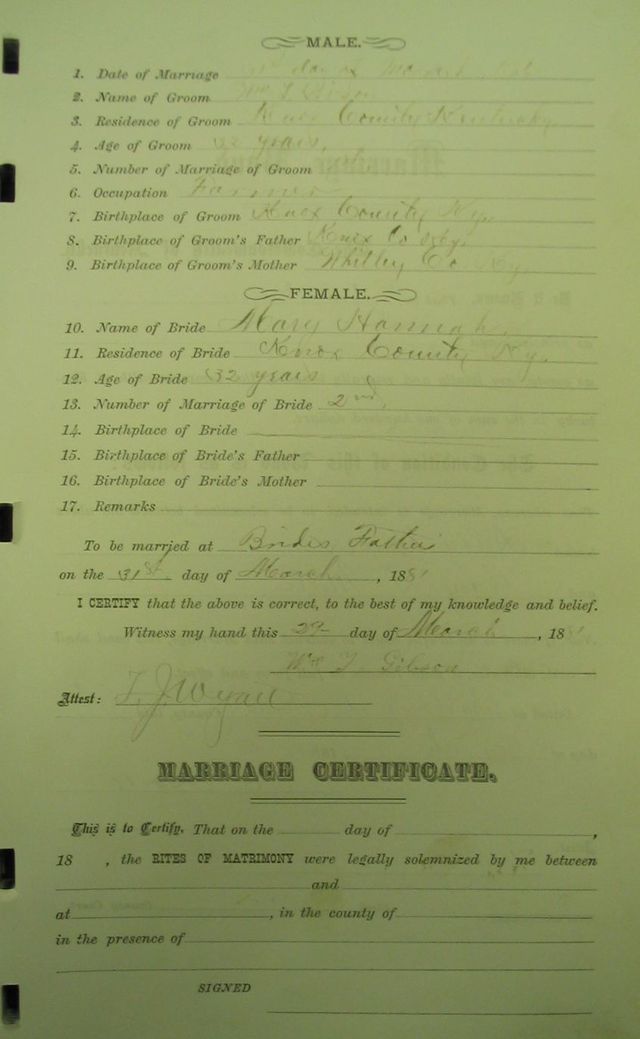 MALE.
1. Date of Marriage 31st day of March
2. Name of Groom Wm T Gibson
3. Residence of Groom Knox County Kentucky
4. Age of Groom 32 years,
5. Number of Marriage of Groom
6. Occupation Farmer
7. Birthplace of Groom Knox County Ky.
8. Birthplace of Groom's Father Knox Co Ky.
9. Birthplace of Groom's Mother Whitley Co Ky.
FEMALE.
10. Name of Bride Mary Hannah
11. Residence of Bride Knox County Ky.
12. Age of Bride 32 years
13. Number of Marriage of Bride 2nd,
14. Birthplace of Bride
15. Birthplace of Bride's Father
16. Birthplace of Bride's Mother
17. Remarks
To be married at Brides Father
on the 31st day of March, 188
I CERTIFY that the above is correct, to the best of my knowledge and belief.
Witness my hand this 29 day of March, 188
Wm T Gibson
Attest:
MARRIAGE CERTIFICATE.
This is to Certify, That on the day of ,
18 , the RITES OF MATRIMONY were legally solemnized by me between
and
at , in the county of
in the presence of
SIGNED